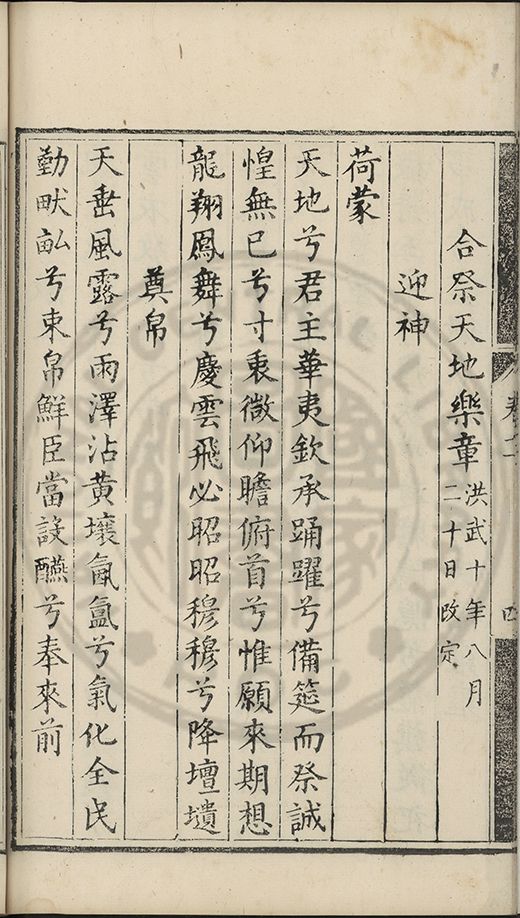 合祭天地樂章洪武十年八月
二十日改定
迎神
荷蒙
天地兮君主華夷欽承踊躍兮備筵而祭誠
惶無已兮寸衷微仰瞻俯首兮惟願來期想
龍翔鳳舞兮慶雲飛必昭昭穆穆兮降壇壝
奠帛
天垂風露兮雨澤沾黄壤氤氲兮氣化全民
勤畎畝兮束帛鮮臣當設醼兮奉來前